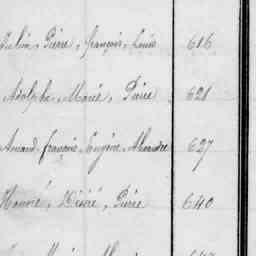 Pierre, françois, Louis 616
Adolphe, Marie, Pierre 621
Amand, françois, Eugène, Alexandre 627
Honoré, Désiré, Pierre 640